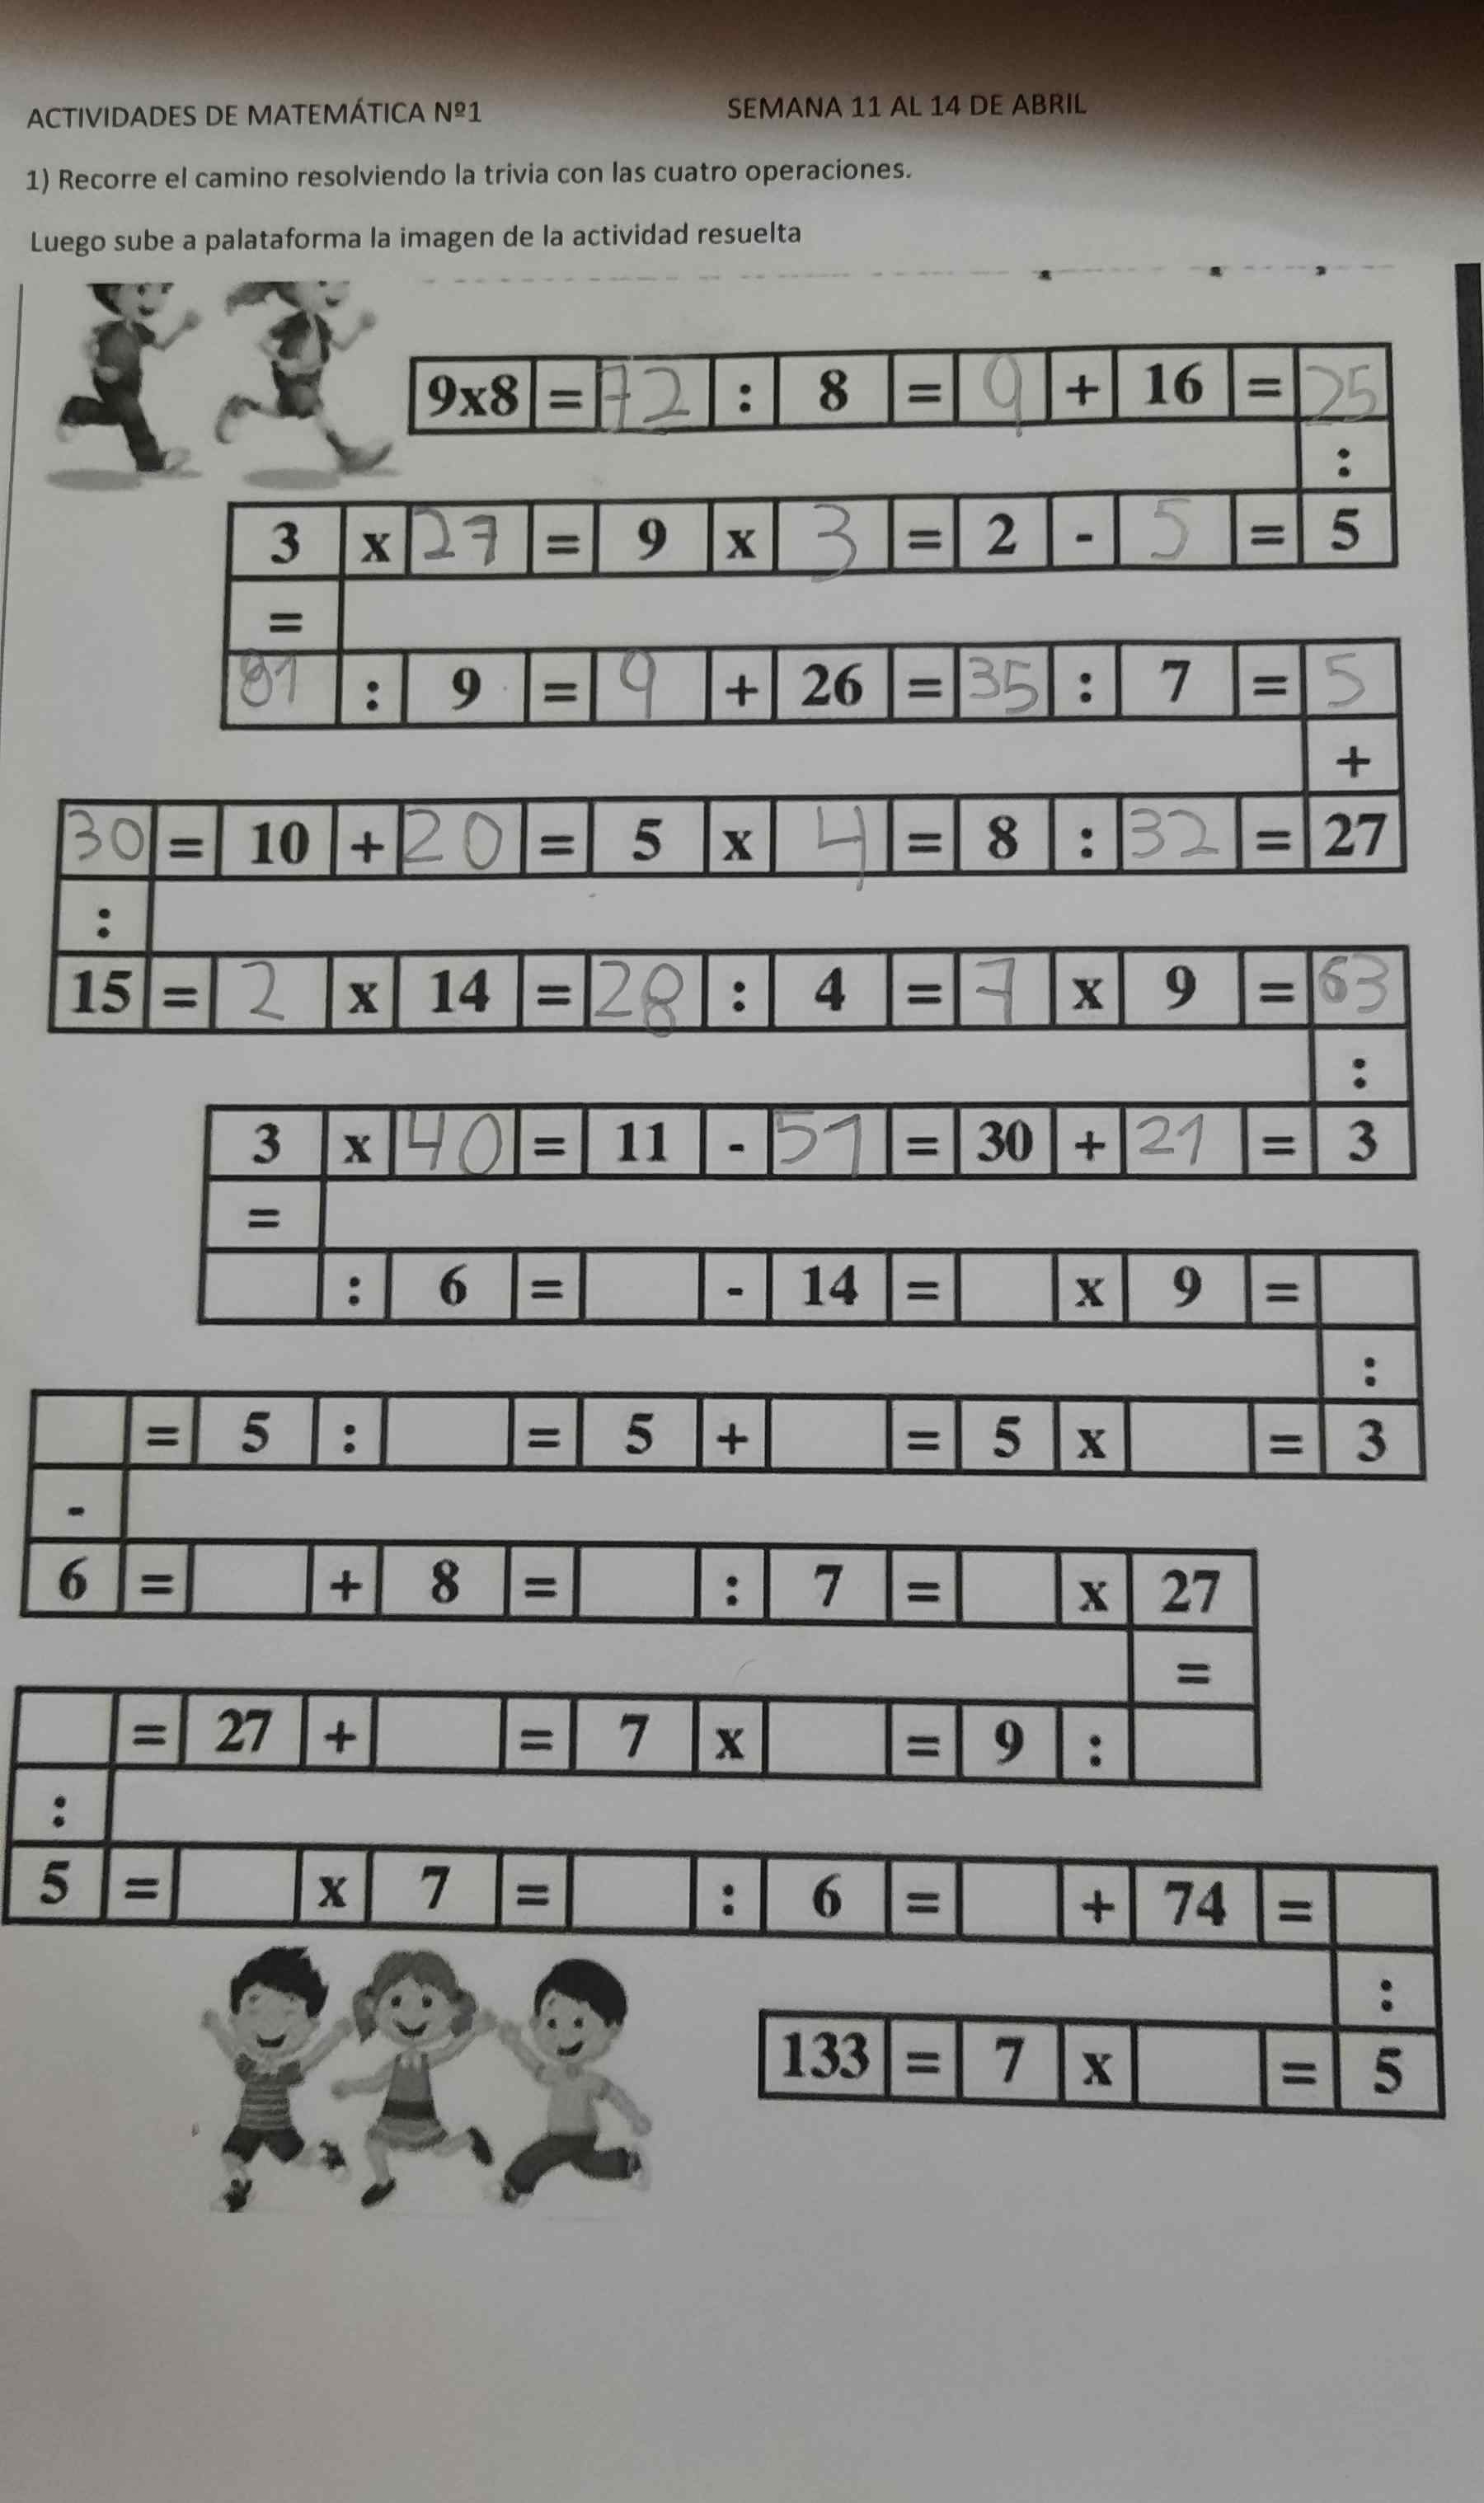 ACTIVIDADES DE MATEMÁTICA Nº1 SEMANA 11 AL 14 DE ABRIL
1) Recorre el camino resolviendo la trivia con las cuatro operaciones.
Luego sube a palataforma la imagen de la actividad resuelta
9x8 = 72 : 8 = 9 + 16 = 25
:
3 x 27 = 9 x 3 = 2 - 5 = 5
=
81 : 9 = 9 + 26 = 35 : 7 = 5
+
30 = 10 + 20 = 5 x 4 = 8 : 32 = 27
:
15 = 2 x 14 = 28 : 4 = 7 x 9 = 63
:
3 x 40 = 11 - 51 = 30 + 21 = 3
=
: 6 = - 14 = x 9 =
:
= 5 : = 5 + = 5 x = 3
-
6 = + 8 = : 7 = x 27
=
= 27 + = 7 x = 9 :
:
5 = x 7 = : 6 = + 74 =
:
133 = 7 x = 5